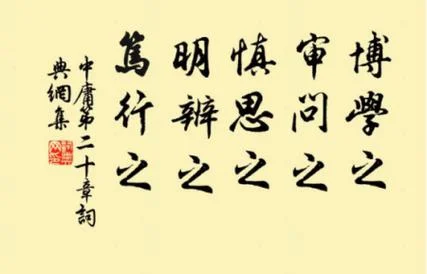 博學之
审问之
慎思之
明辨之
篤行之
中庸第二十章詞
典網集